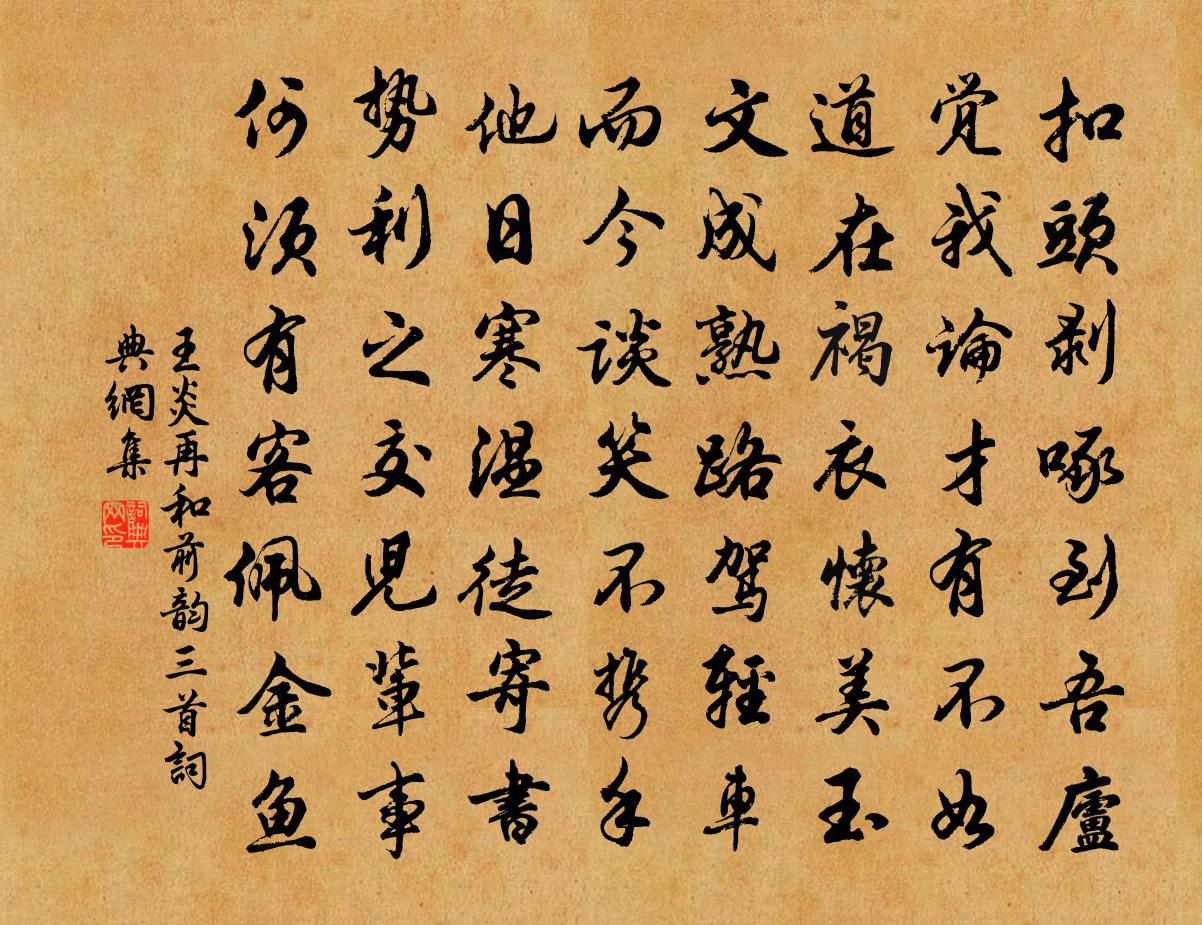 扣頭剥啄到吾廬
覚我論才有不如
道在褐衣懷美玉
文成熟路駕輕車
而今談笑不携手
他日寒温徒寄書
勢利之交児輩事
何須有客佩金魚
王炎再和前韵三首詞
典網集
詞典
网印